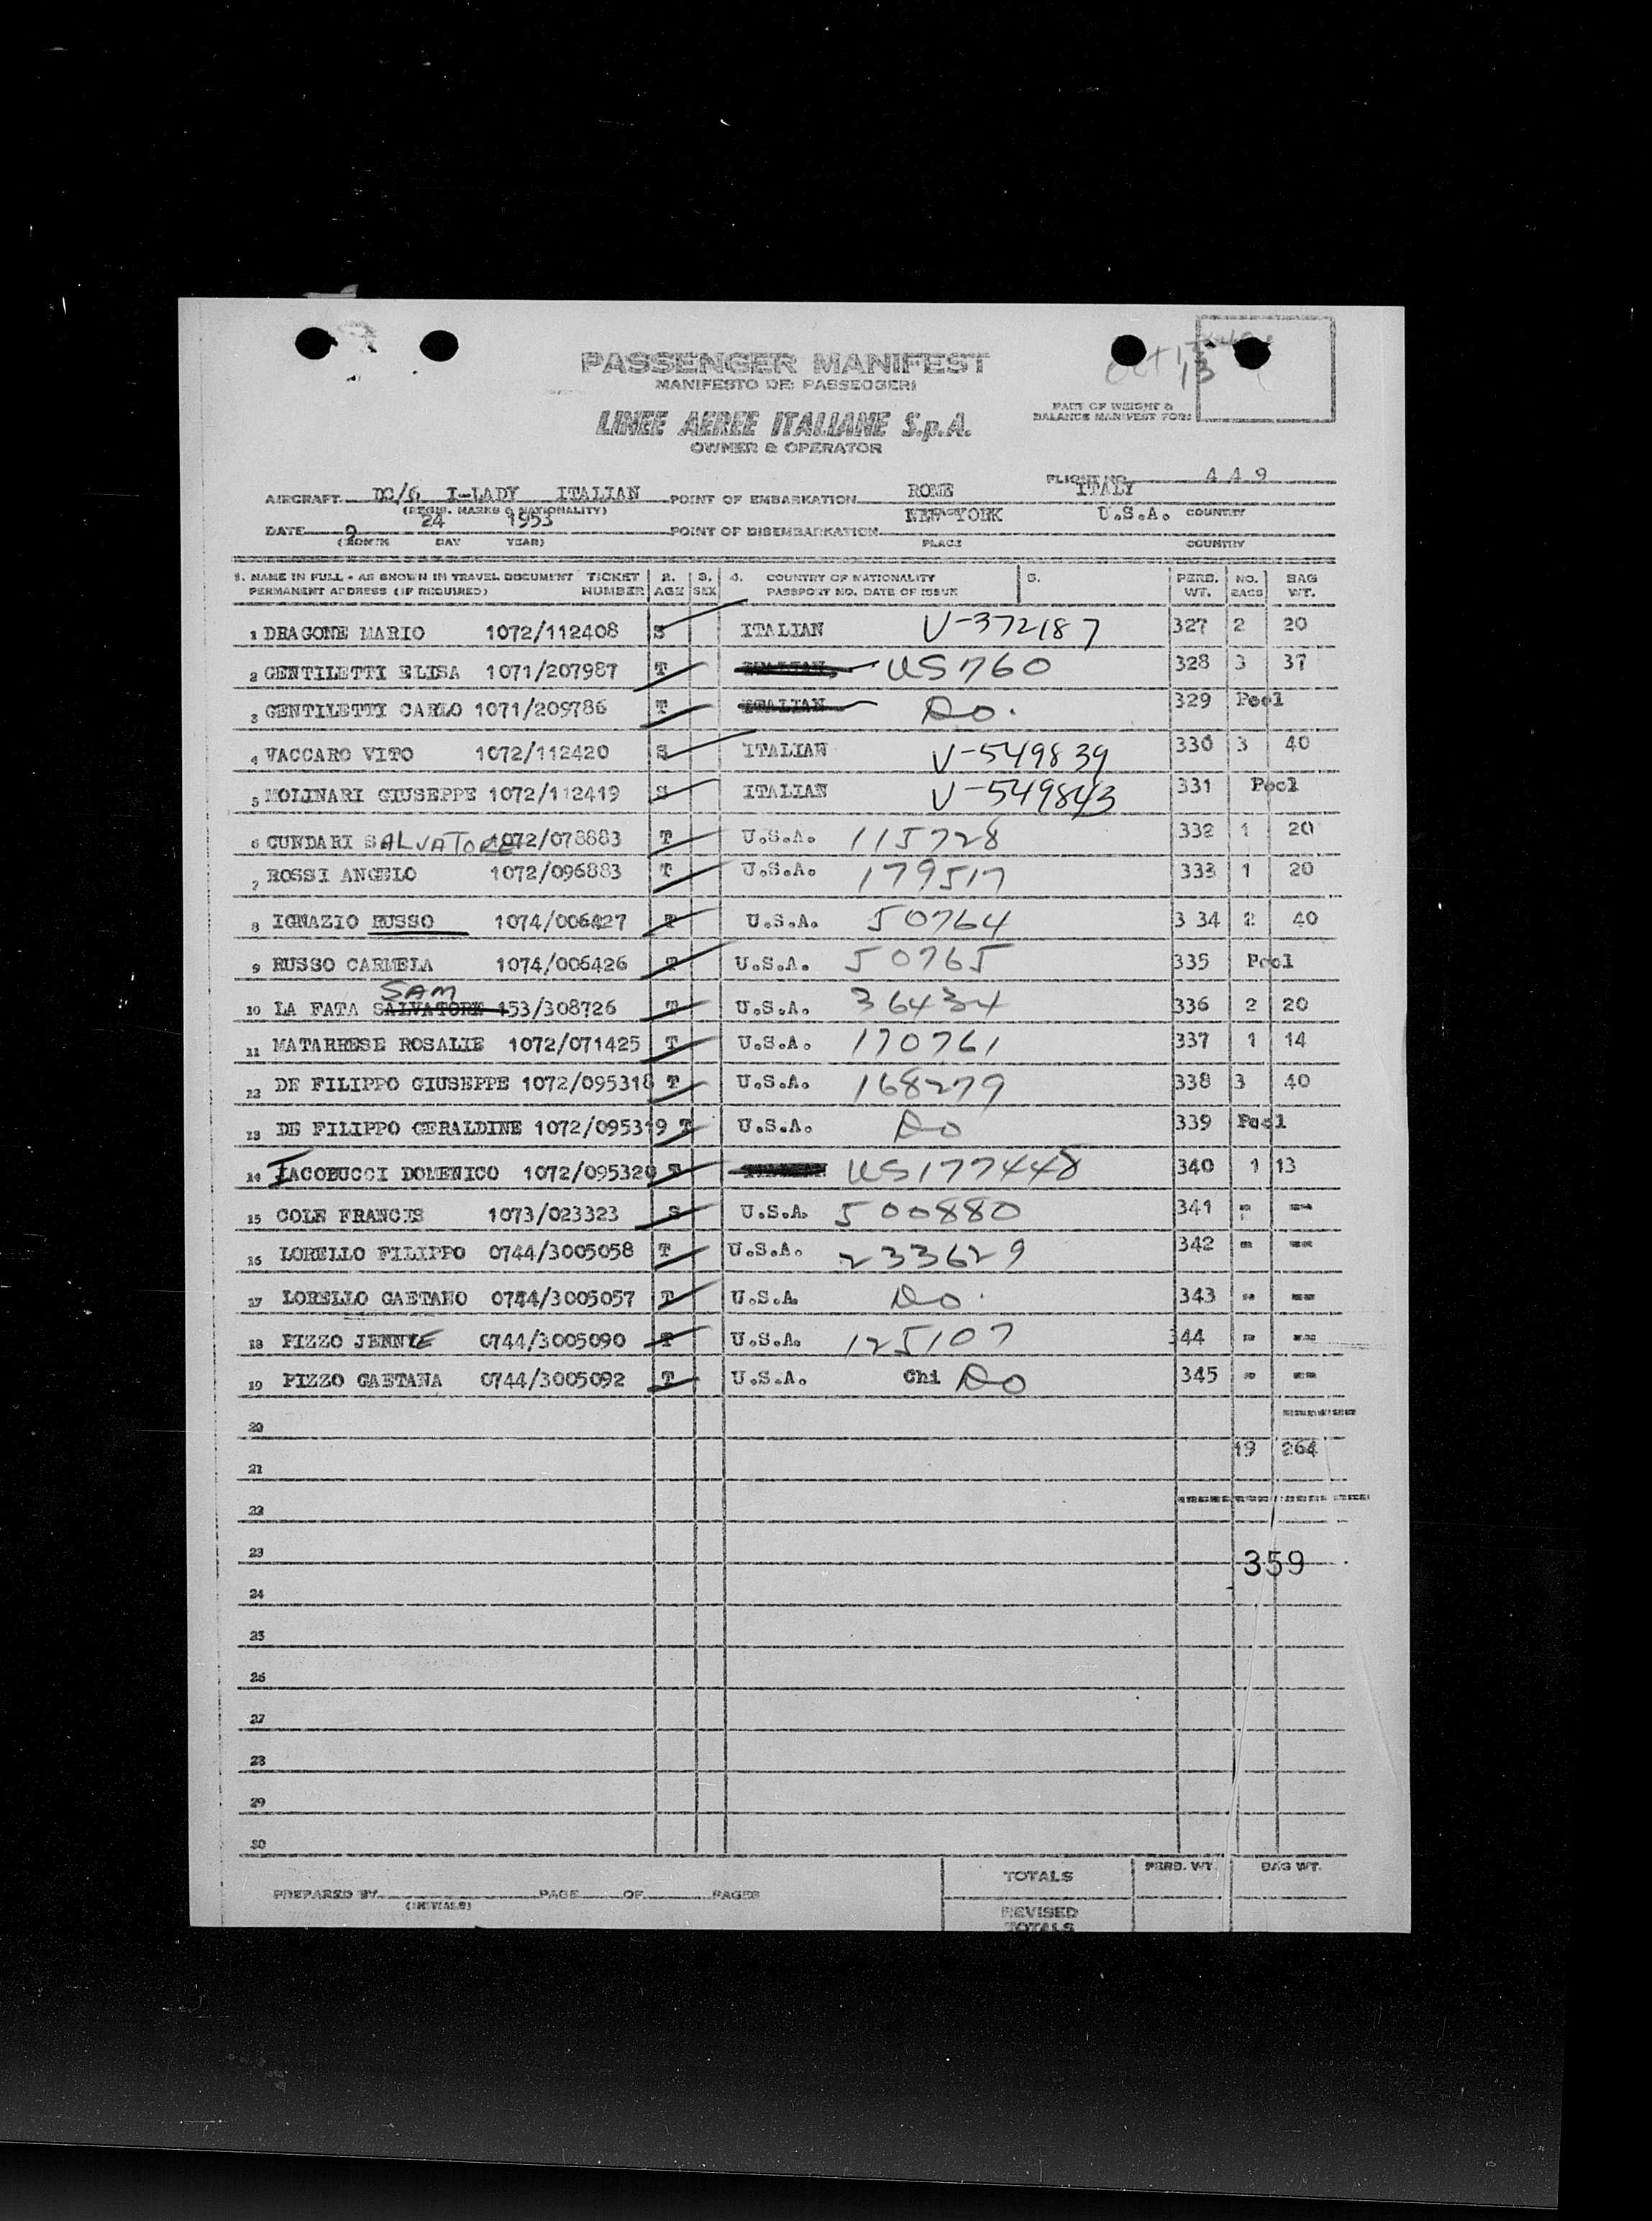 Oct 13
PASSENGER MANIFEST
MANIFESTO DEI PASSEGGERI
PART OF WEIGHT &
BALANCE MANIFEST FOR:
LINEE AEREE ITALIANE S.p.A.
OWNER & OPERATOR
FLIGHT NO. 449
AIRCRAFT DC/6 I-LADY ITALIAN POINT OF EMBARKATION ROME ITALY
(REGIS. MARKS & NATIONALITY) PLACE COUNTRY
DATE 9 24 1953 POINT OF DISEMBARKATION NEW YORK U.S.A.
(MONTH DAY YEAR) PLACE COUNTRY
1. NAME IN FULL - AS SHOWN IN TRAVEL DOCUMENT TICKET 2. 3. 4. COUNTRY OF NATIONALITY 5. PERS. NO. BAG
PERMANENT ADDRESS (IF REQUIRED) NUMBER AGE SEX PASSPORT NO. DATE OF ISSUE WT. BAGS WT.
1 DRAGONE MARIO 1072/112408 S ITALIAN V-372187 327 2 20
2 GENTILETTI ELISA 1071/207987 T ITALIAN US 760 328 3 37
3 GENTILETTI CARLO 1071/209786 T ITALIAN Do. 329 Pool
4 VACCARO VITO 1072/112420 S ITALIAN V-549839 330 3 40
5 MOLINARI GIUSEPPE 1072/112419 S ITALIAN V-549843 331 Pool
6 CUNDARI SALVATORE 1072/078883 T U.S.A. 115728 332 1 20
7 ROSSI ANGELO 1072/096883 T U.S.A. 179517 333 1 20
8 IGNAZIO RUSSO 1074/006427 T U.S.A. 50764 3 34 2 40
9 RUSSO CARMELA 1074/006426 T U.S.A. 50765 335 Pool
SAM
10 LA FATA SALVATORE 153/308726 T U.S.A. 36434 336 2 20
11 MATARRESE ROSALIE 1072/071425 T U.S.A. 170761 337 1 14
12 DE FILIPPO GIUSEPPE 1072/095318 T U.S.A. 168279 338 3 40
13 DE FILIPPO GERALDINE 1072/095319 T U.S.A. Do 339 Pool
14 IACOBUCCI DOMENICO 1072/095320 T US 177448 340 1 13
15 COLE FRANCIS 1073/023323 S U.S.A. 500880 341 - --
16 LORELLO FILIPPO 0744/3005058 T U.S.A. 233629 342 - --
17 LORELLO GAETANO 0744/3005057 T U.S.A Do. 343 - --
18 PIZZO JENNIE 0744/3005090 T U.S.A. 125107 344 - --
19 PIZZO GAETANA 0744/3005092 T U.S.A. Chi Do 345 - --
20
19 264
21
22
23
359
24
25
26
27
28
29
30
TOTALS PERS. WT. BAG WT.
PREPARED BY PAGE OF PAGES
(INITIALS)
REVISED
TOTALS